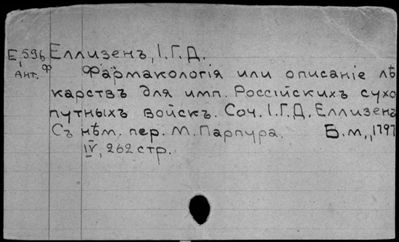 Е,596 Еллизенъ, І.Г.Д.
Ант. Ф Фармакологія или описаніе лѣ
карствъ для имп. Россійскихъ сухо
путныхъ войскъ. Соч. І.Г.Д. Еллизенъ
Съ нѣм. пер. М. Парпура. Б.м., 1797
IV, 262 стр.